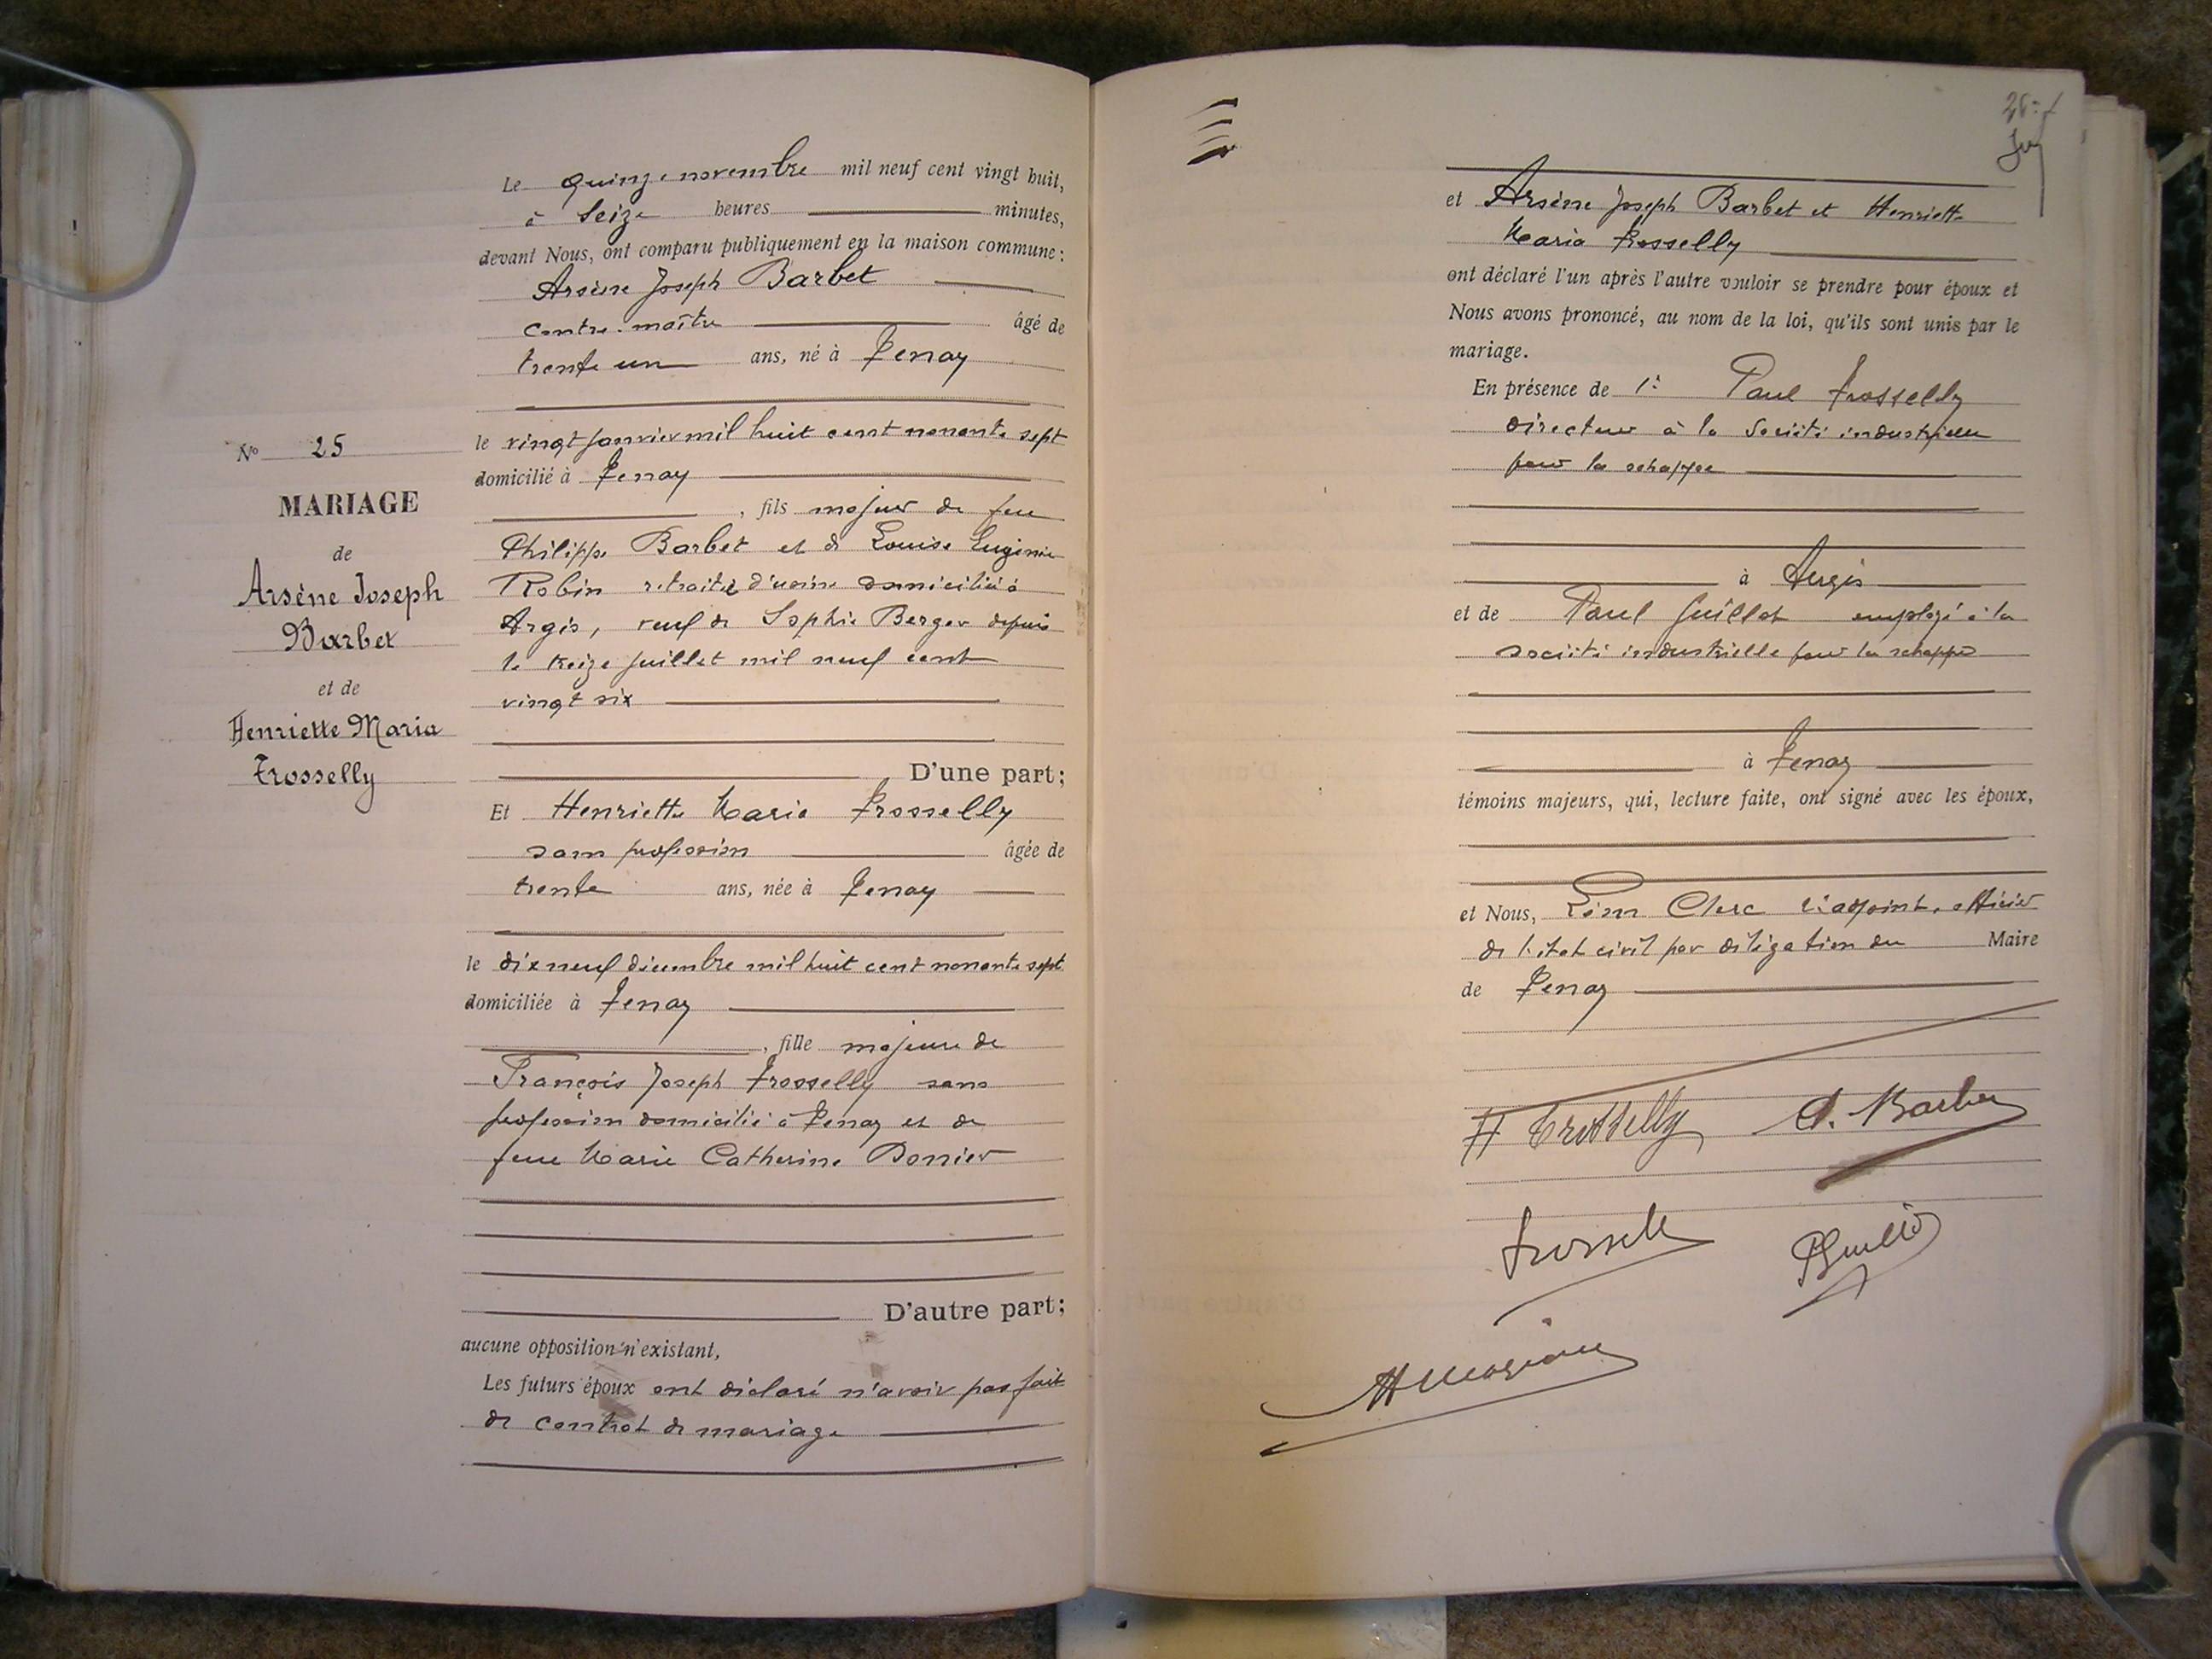 Le quinze novembre mil neuf cent vingt huit,
à seize heures minutes,
devant Nous, ont comparu publiquement en la maison commune :
Arsène Joseph Barbet
contre-maître âgé de
trente un ans, né à Tenay
le vingt janvier mil huit cent nonante sept
domicilié à Tenay
, fils majeur de feu
Philippe Barbet et de Louise Eugénie
Robin retraitée d'usine domiciliée à
Argis, veuf de Sophie Berger depuis
le treize juillet mil neuf cent
vingt six
D'une part ;
Et Henriette Maria Trosselly
sans profession âgée de
trente ans, née à Tenay
le dix neuf décembre mil huit cent nonante sept
domiciliée à Tenay
, fille majeure de
François Joseph Trosselly sans
profession domicilié à Tenay et de
feue Marie Catherine Bonier
D'autre part ;
aucune opposition n'existant,
Les futurs époux ont déclaré n'avoir pas fait
de contrat de mariage
No 25
MARIAGE
de
Arsène Joseph
Barbet
et de
Henriette Maria
Trosselly
et Arsène Joseph Barbet et Henriette
Maria Trosselly
ont déclaré l'un après l'autre vouloir se prendre pour époux et
Nous avons prononcé, au nom de la loi, qu'ils sont unis par le
mariage.
En présence de 1° Paul Trosselly
directeur à la Société industrielle
pour la schappe
à Argis
et de Paul Guillot employé à la
société industrielle pour la schappe
à Tenay
témoins majeurs, qui, lecture faite, ont signé avec les époux,
et Nous, Léon Clerc adjoint, officier
de l'état civil par délégation du Maire
de Tenay
H Trosselly A. Barbet
Trosselly PGuillot